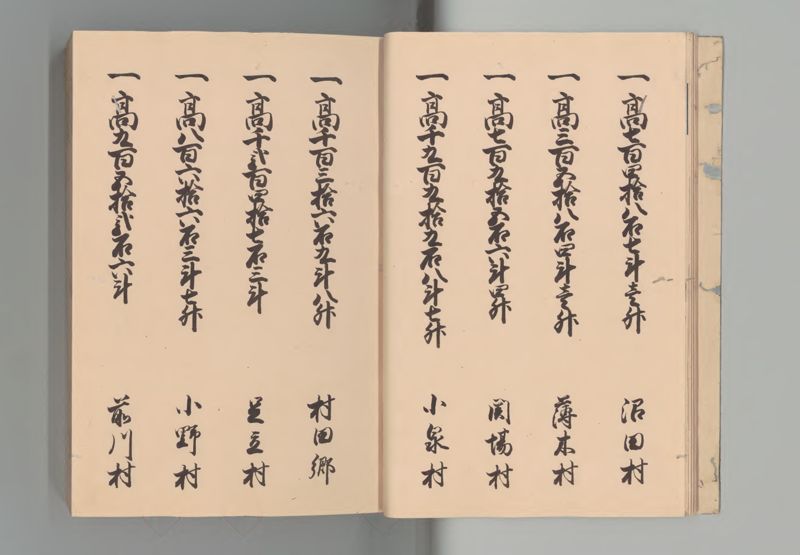 一高七百四拾八石七斗壱升 沼田村
一高三百五拾八石四斗壱升 薄木村
一高七百九拾五石六斗四升 関場村
一高千九百九拾五石八斗七升 小泉村
一高千百三拾六石九斗八升 村田郷
一高千弐百四拾七石三斗 足立村
一高八百六拾六石三斗七升 小野村
一高九百五拾弐石六斗 前川村